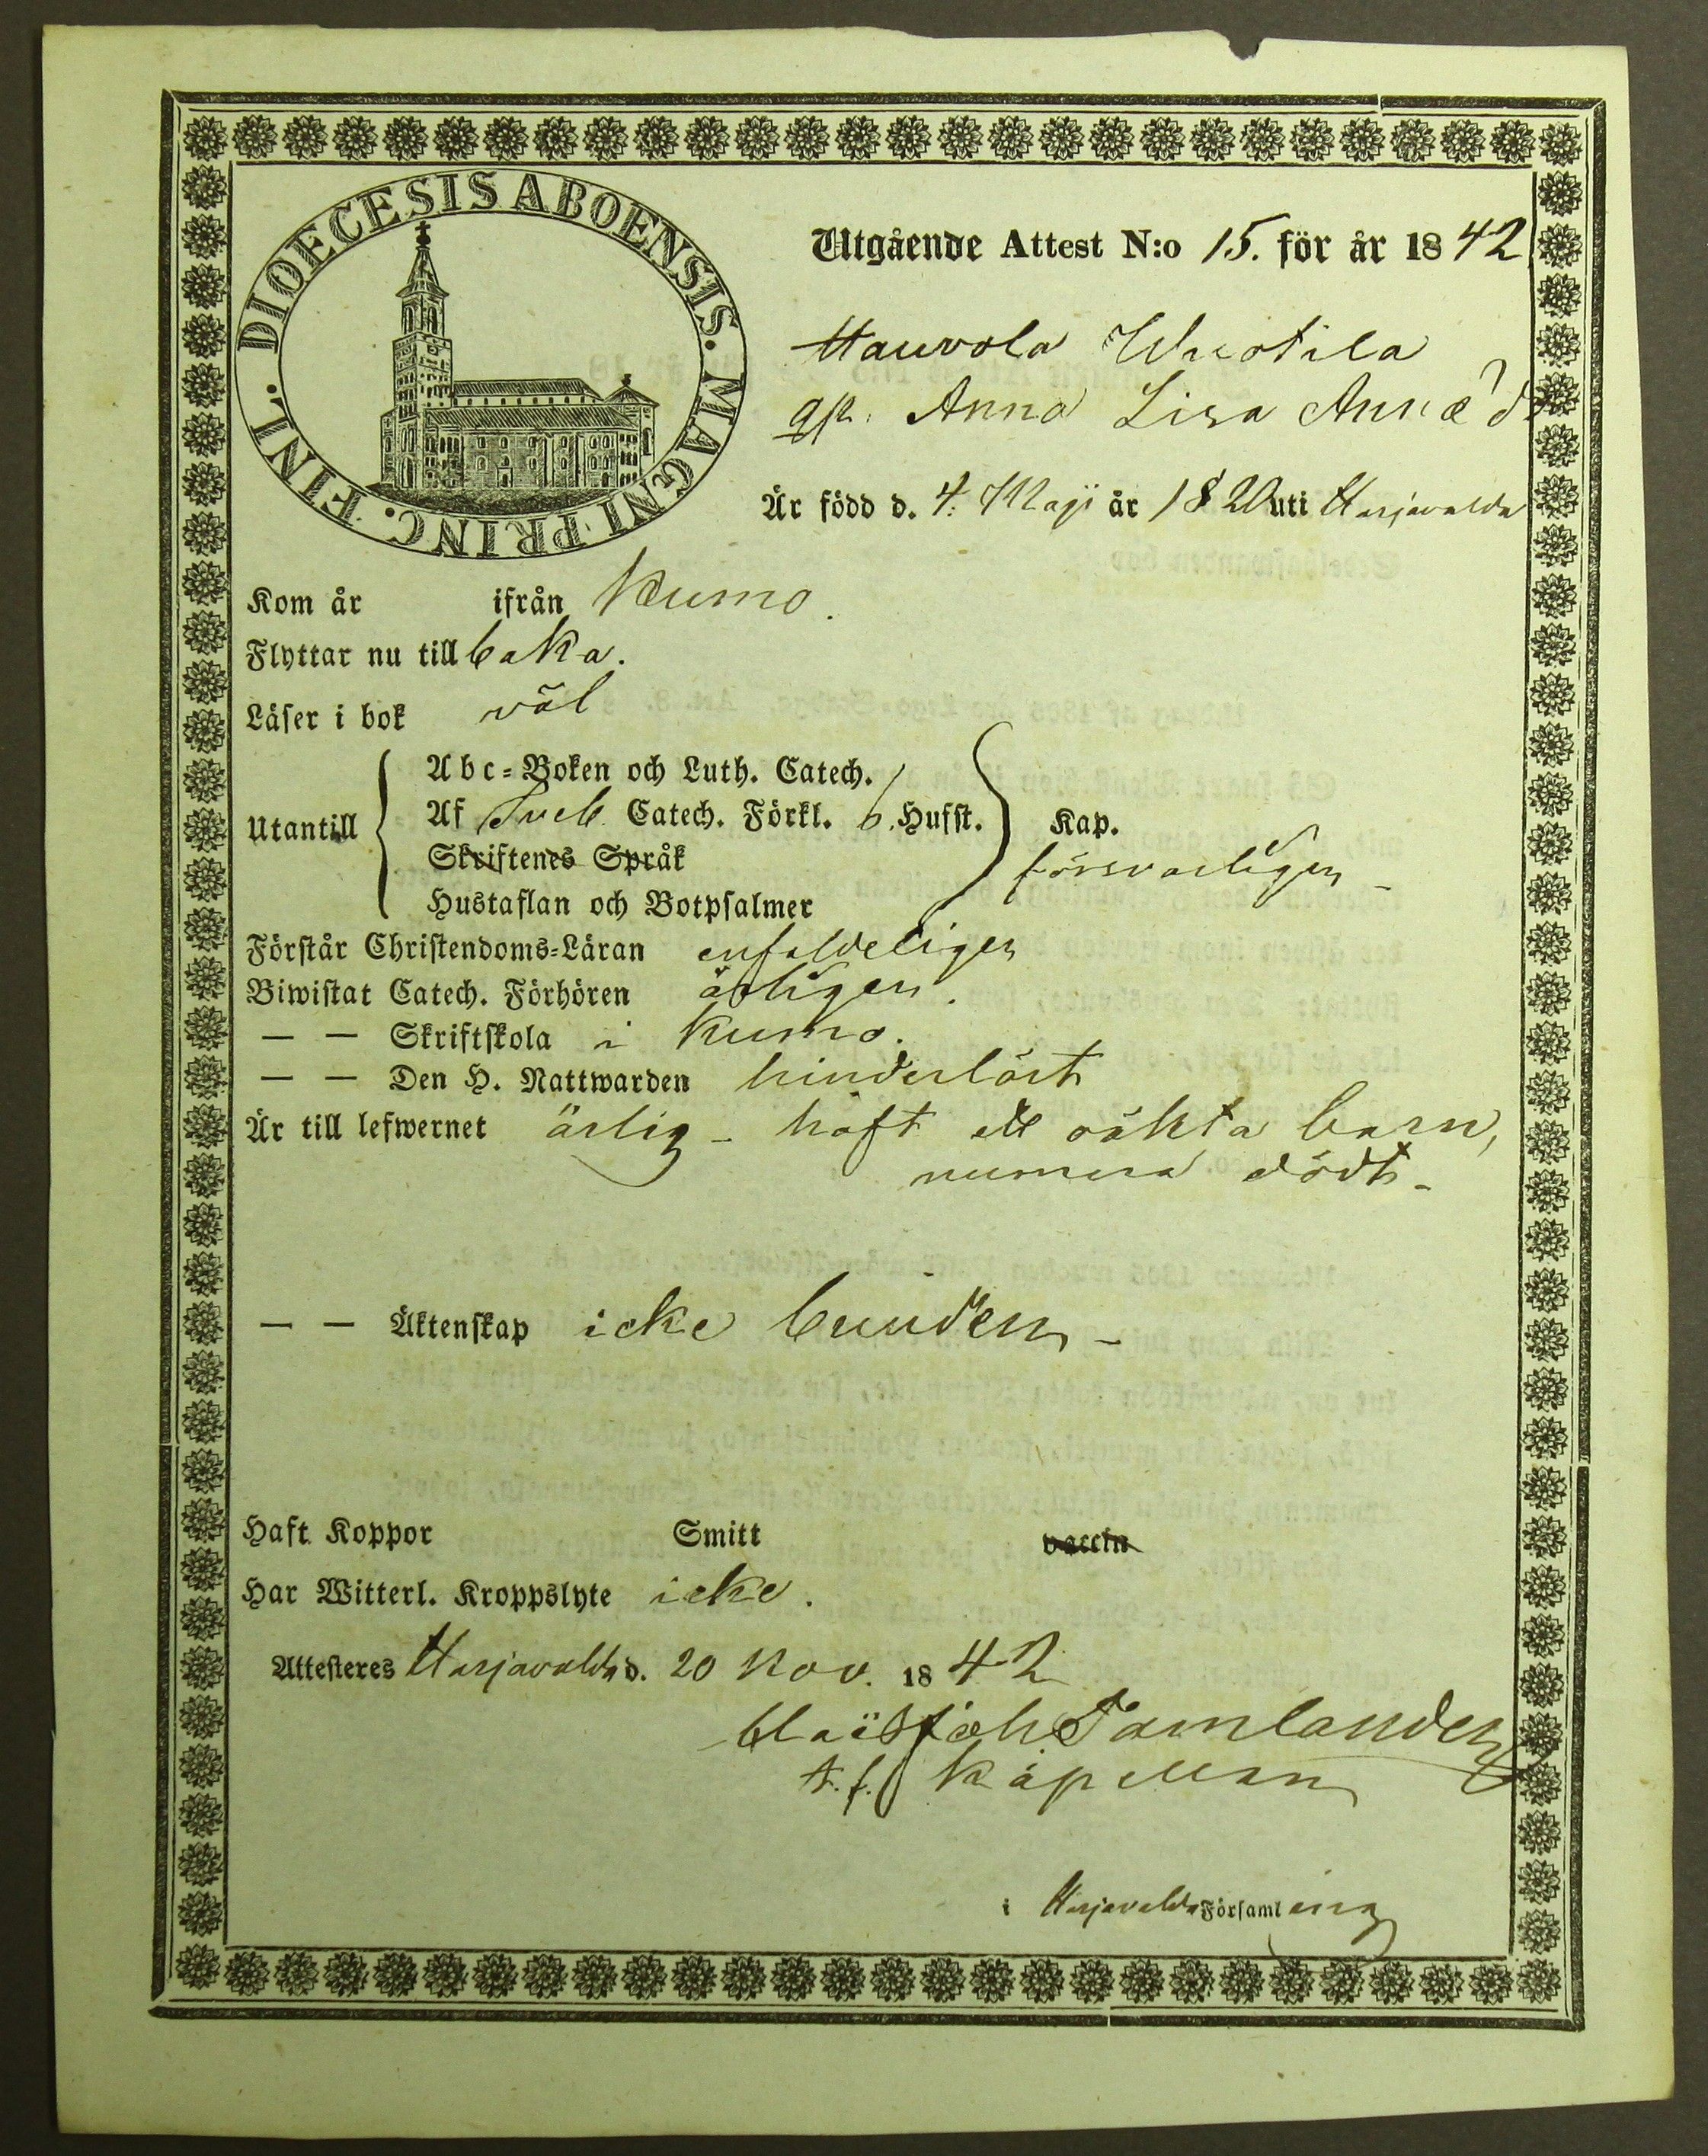 DIOECESIS ABOENSIS. MAGNI PRINC. FINL.
Utgående Attest N:o 15. för år 1842
Hauvola Wuotila
qp. Anna Lisa Annæ d.
Är född d. 4: Maji år 1820 uti Harjavalda
Kom år ifrån Kumo.
Flyttar nu till baka.
Läser i bok väl
Utantill
Abc-Boken och Luth. Catech.
Af Sveb. Catech. Förkl. 6. Hufst.
Skriftenes Språk
Hustaflan och Botpsalmer
Kap.
försvarligen -
Förstår Christendoms-Läran enfaldeligen
Biwistat Catech. Förhören årligen.
— — Skriftskola i Kumo.
— — Den H. Nattwarden hinderlöst
Är till lefwernet ärlig - haft ett oäkta barn,
numera dödt -
— — Äktenskap icke bunden -
Haft Koppor Smitt vaccin
Har Witterl. Kroppslyte icke.
Attesteres Harjavalda d. 20 Nov. 1842
Tamlander
t. f. Kapellan
i Harjavalda Församling